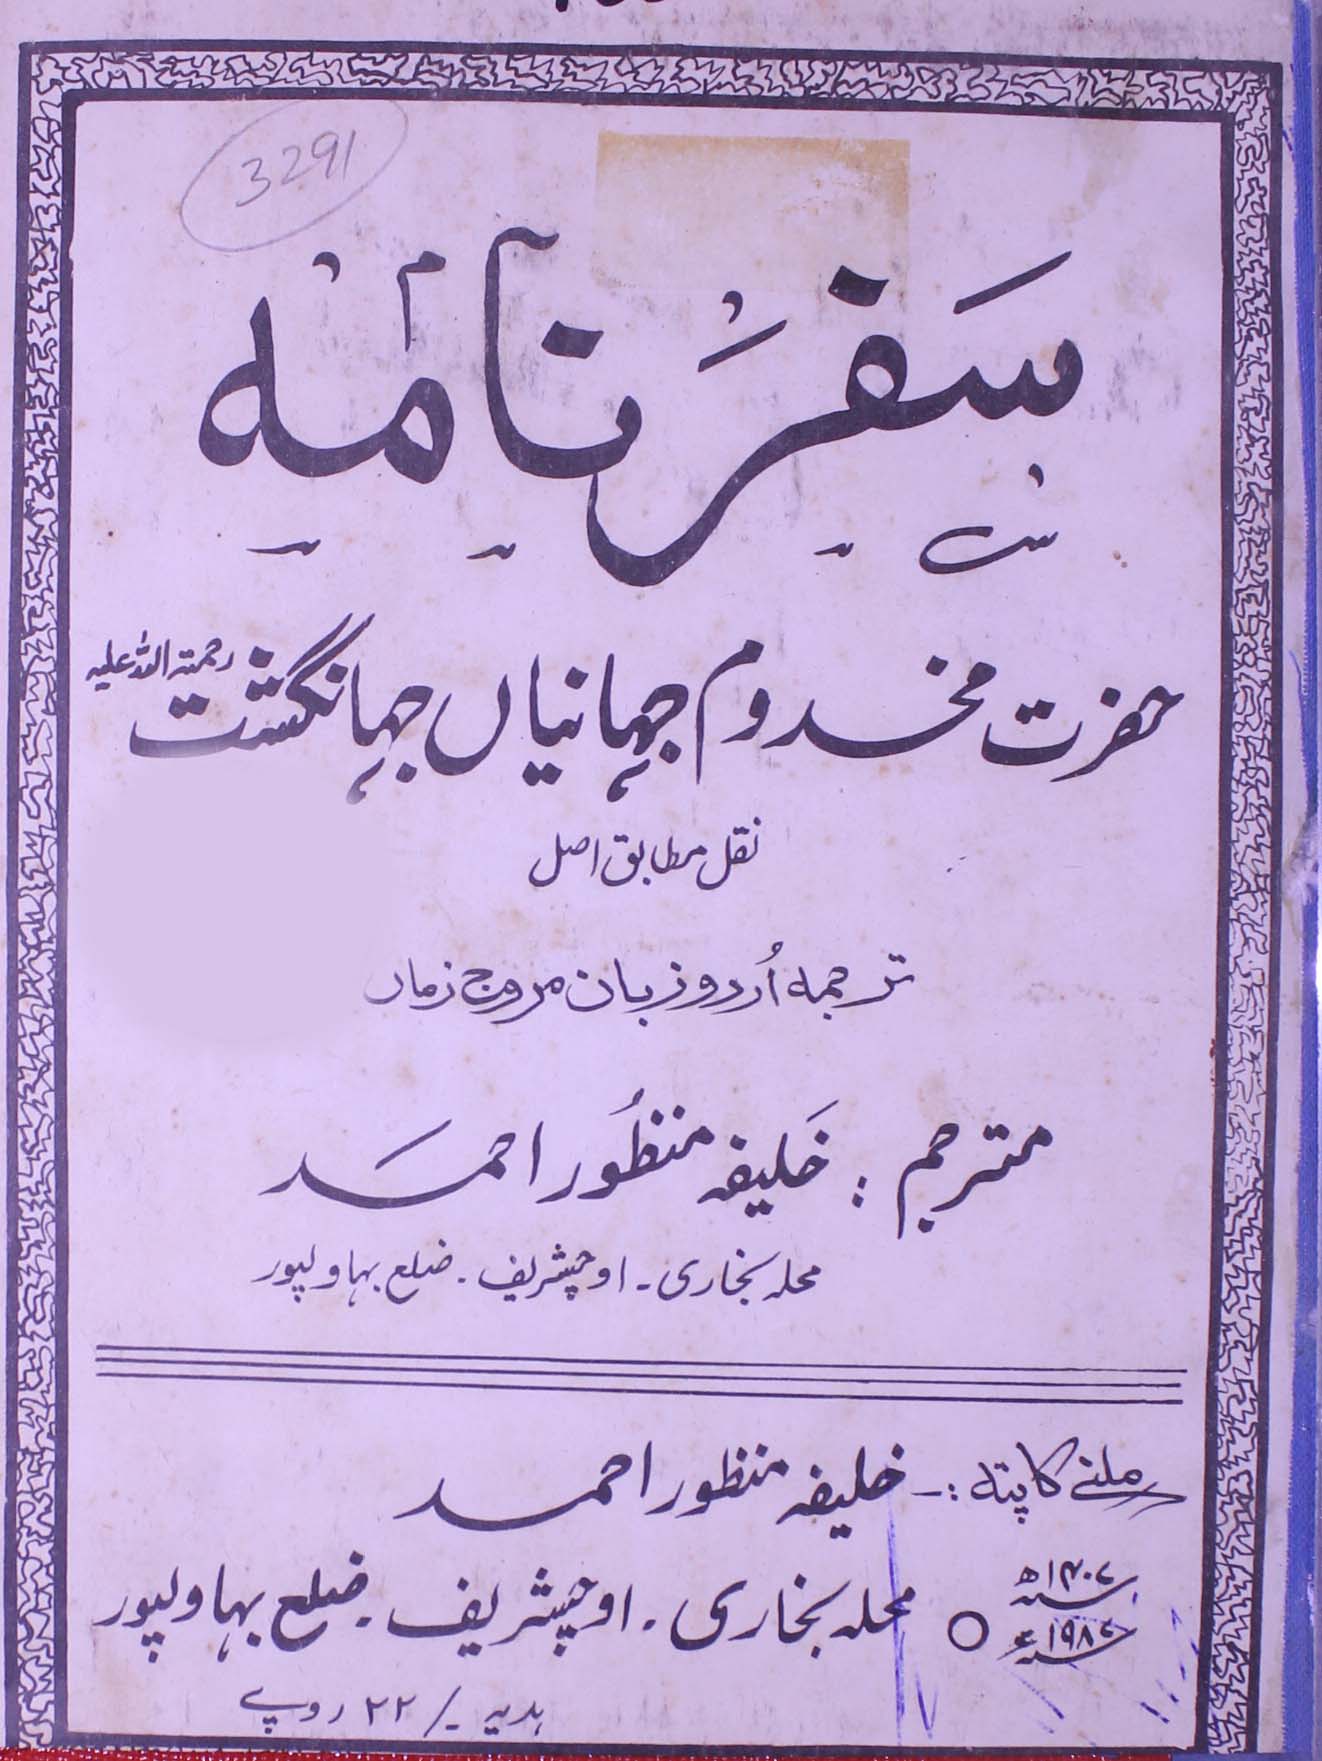 3291
سفر نامہ
حضرت مخدوم جہانیاں جہانگشت رحمتہ اللہ علیہ
نقل مطابق اصل
ترجمہ اُردو زبان مروج زماں
مترجم : خلیفہ منظُور احمد
محلہ بخاری ۔ اوچشریف ۔ ضلع بہاولپور
ملنے کا پتہ :۔ خلیفہ منظور احمد
سنہ ۱۴۰۲ھ
سنہ ۱۹۸۲ء ○ محلہ بخاری ۔ اوچشریف ۔ ضلع بہاولپور
ہدیہ ۔/ ۲۲ روپے